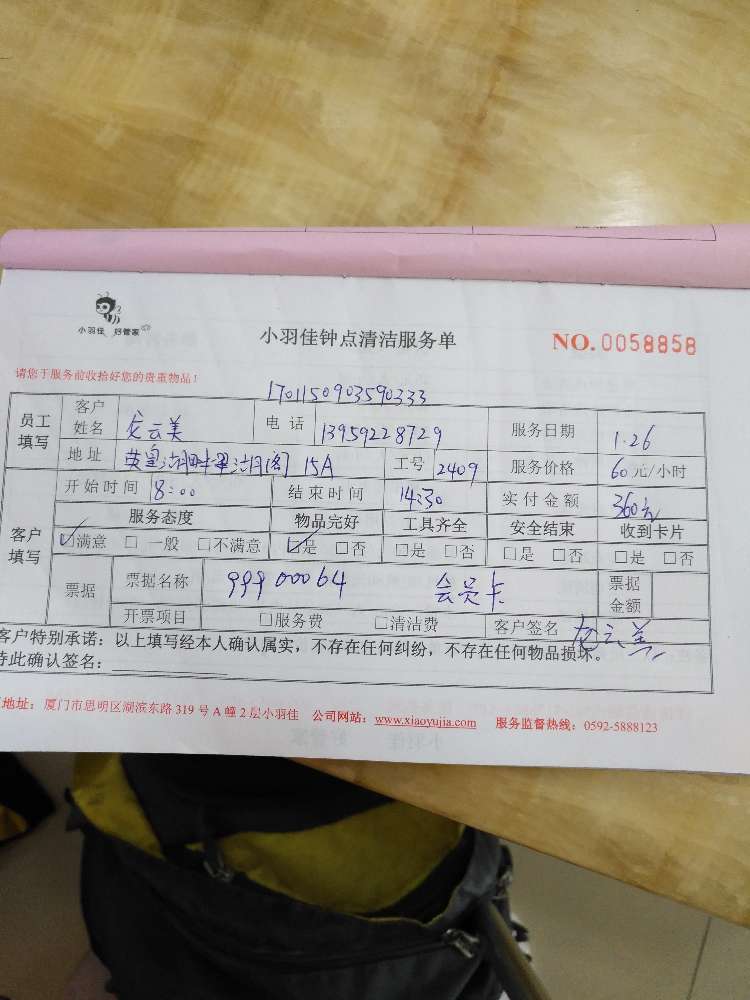 小羽佳 好管家
小羽佳钟点清洁服务单
NO. 0058858
请您于服务前收拾好您的贵重物品！
1701150903590333
员工填写 客户姓名 龙云美 电话 13959228729 服务日期 1.26
地址 英皇湖畔翠湖阁 15A 工号 2409 服务价格 60元/小时
客户填写 开始时间 8:00 结束时间 14:30 实付金额 360元
服务态度 物品完好 工具齐全 安全结束 收到卡片
☑满意 □一般 □不满意 ☑是 □否 □是 □否 □是 □否 □是 □否
票据 票据名称 99900064 会员卡 票据金额
开票项目 □服务费 □清洁费 客户签名 龙云美
客户特别承诺：以上填写经本人确认属实，不存在任何纠纷，不存在任何物品损坏。
特此确认签名：
地址：厦门市思明区湖滨东路319号A幢2层小羽佳 公司网站：www.xiaoyujia.com 服务监督热线：0592-5888123